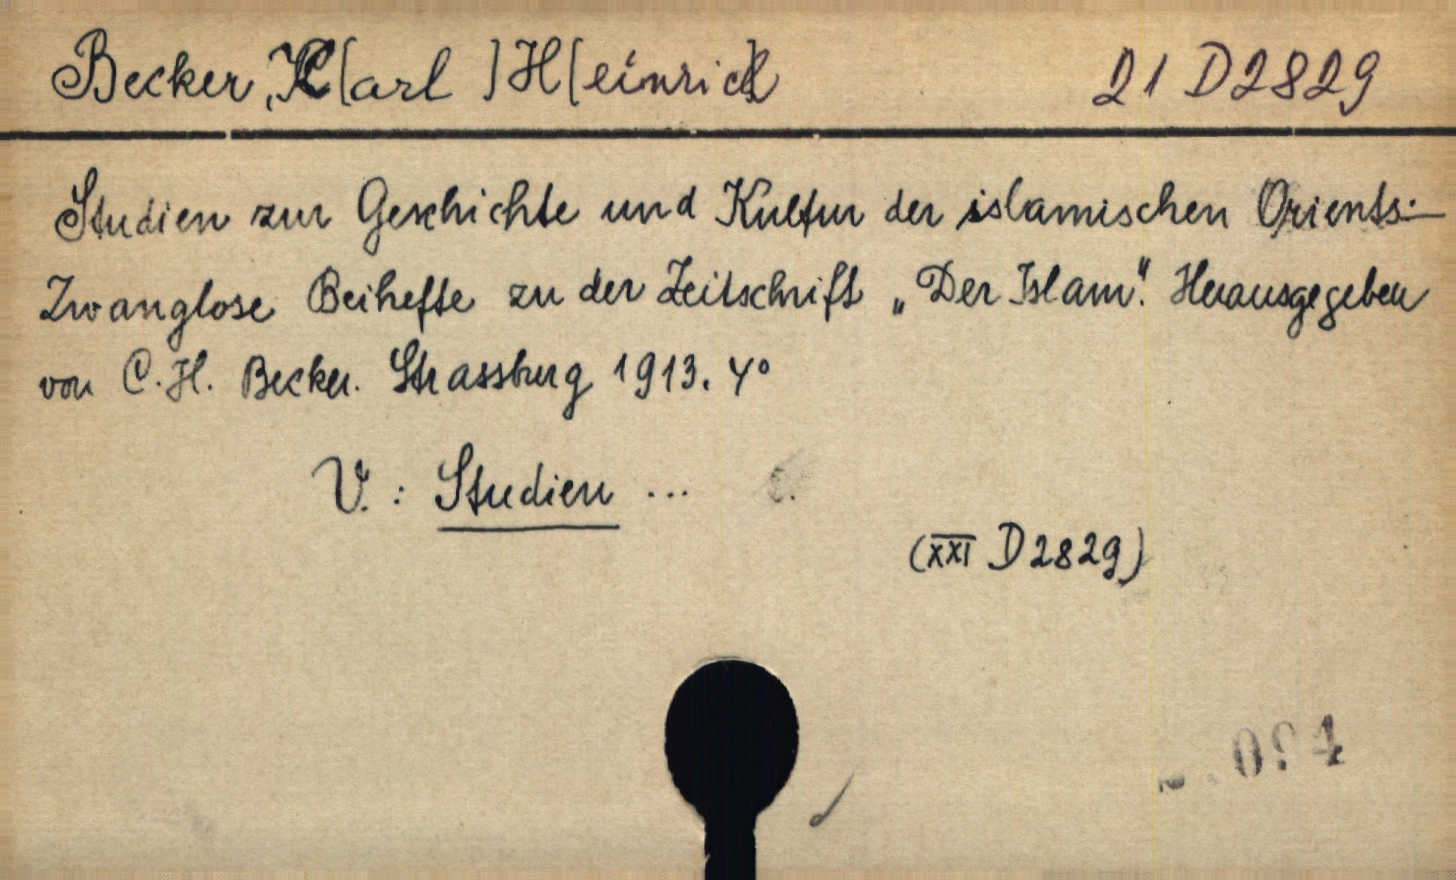 Becker, K[arl] H[einrich] 21 D2829
Studien zur Geschichte und Kultur der islamischen Orients.—
Zwanglose Beihefte zu der Zeitschrift „Der Islam“. Herausgegeben
von C. H. Becker. Strassburg 1913. 4°
V.: Studien ...
(XXI D2829)